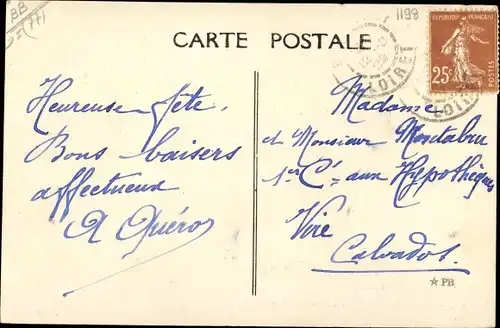 BB
(77)
1198
CARTE POSTALE
REPUBLIQUE FRANÇAISE
25c
POSTES
LOIRET
LOIRET
Heureuse fête.
Bons baisers
affectueux
A Quéro
Madame
et Monsieur Montabru
1er Cis aux Hypothèques
Vire
Calvados.
☆ PB